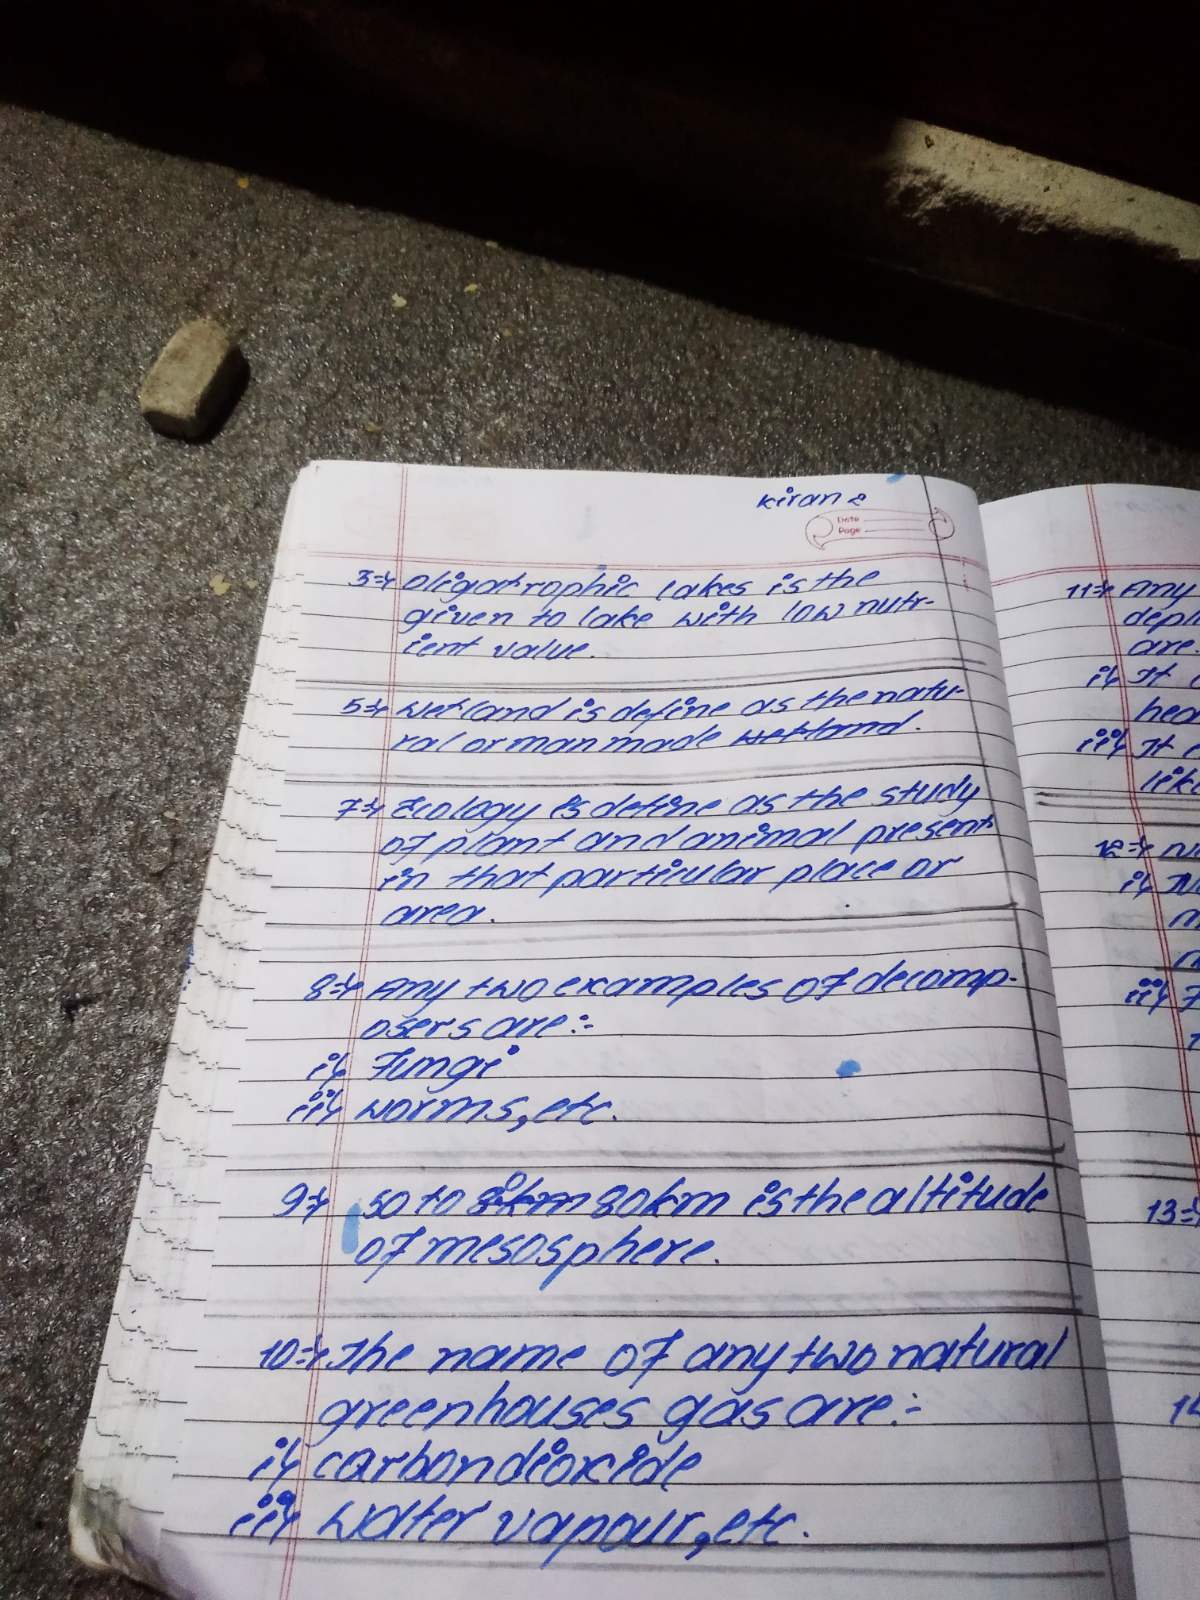 kiran 2
Date
Page
3=> Oligatrophic lakes is the
given to lake with low nutr-
ient value.
5=> Wetland is define as the natu-
ral or man made wetland.
7=> Ecology is define as the study
of plant and animal present
in that particular place or
area.
8=> Any two examples of decomp-
osers are:-
i) Fungi
ii) worms, etc.
9=> 50 to 80km is the altitude
of mesosphere.
10=> The name of any two natural
greenhouses gas are:-
i) carbondioxide
ii) Water vapour, etc.
11=> Any
depl
are.
i) It
hea
ii) It
like
12=>
i)
ii)
13=>
14